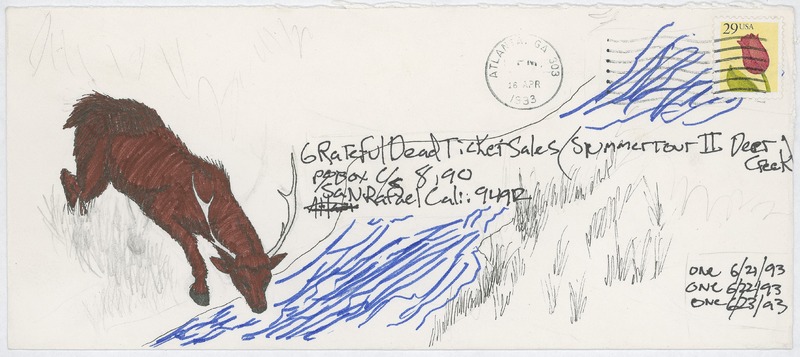 29 USA
ATLANTA, GA 303
PM
16 APR
1993
Grateful Dead Ticket Sales (Summer Tour II Deer Creek)
P.O. Box C/S 8190
San Rafael Cali.
one 6/21/93
one 6/22/93
one 6/23/93